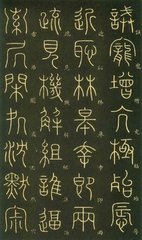 誡寵增亢極殆辱
近恥林皋幸即兩
疏見機解組誰逼
索凥閑処沈默寂